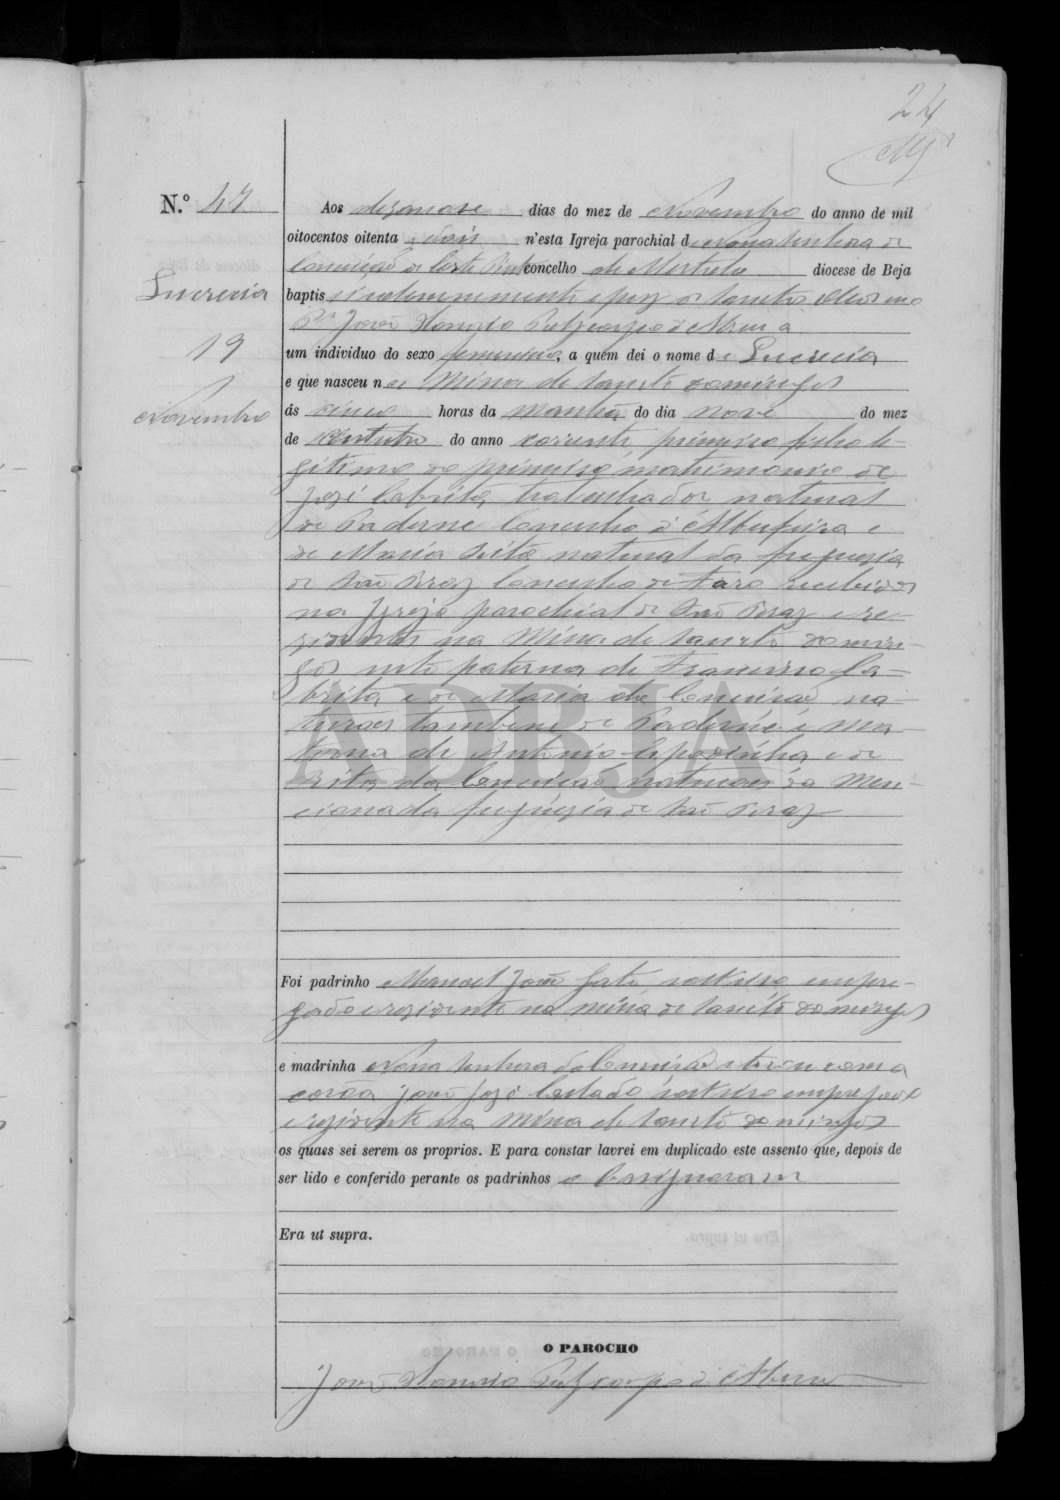 24
N.º 47
Lucrecia
19
Novembro
Aos dezanove dias do mez de Novembro do anno de mil
oitocentos oitenta e dois n'esta Igreja parochial de Nossa Senhora da
Conceição de Corte Pinto concelho de Mertola diocese de Beja
baptisei solemnemente e puz os Santos Oleos eu o
P.e João Honorio Polycarpo d'Abreu a
um individuo do sexo femenino, a quem dei o nome de Lucrecia
e que nasceu na Mina de Santo Domingos
ás cinco horas da manhã do dia nove do mez
de Outubro do anno corrente, primeiro filho le-
gitimo do primeiro matrimonio de
José Cabrita, trabalhador natural
de Paderne Concelho d'Albufeira e
de Maria Rita natural da freguezia
de São Braz Concelho de Faro recebidos
na Igreja parochial de São Braz e re-
zidentes na Mina de Santo Domin-
gos neto paterna de Francisco Ca-
brita e de Maria da Conceição na-
turaes tambem de Paderne e ma-
terna de Antonio e de
Rita da Conceição naturaes da men-
cionada freguezia de São Braz
ADBJA
Foi padrinho Manuel João solteiro empre-
gado e rezidente na mina de Santo Domingos
e madrinha Nossa Senhora da Conceição e tocou com a
corôa João José solteiro empregado
e rezidente na Mina de Santo Domingos
os quaes sei serem os proprios. E para constar lavrei em duplicado este assento que, depois de
ser lido e conferido perante os padrinhos o assignaram
Era ut supra.
O PAROCHO
João Honorio Polycarpo d'Abreu